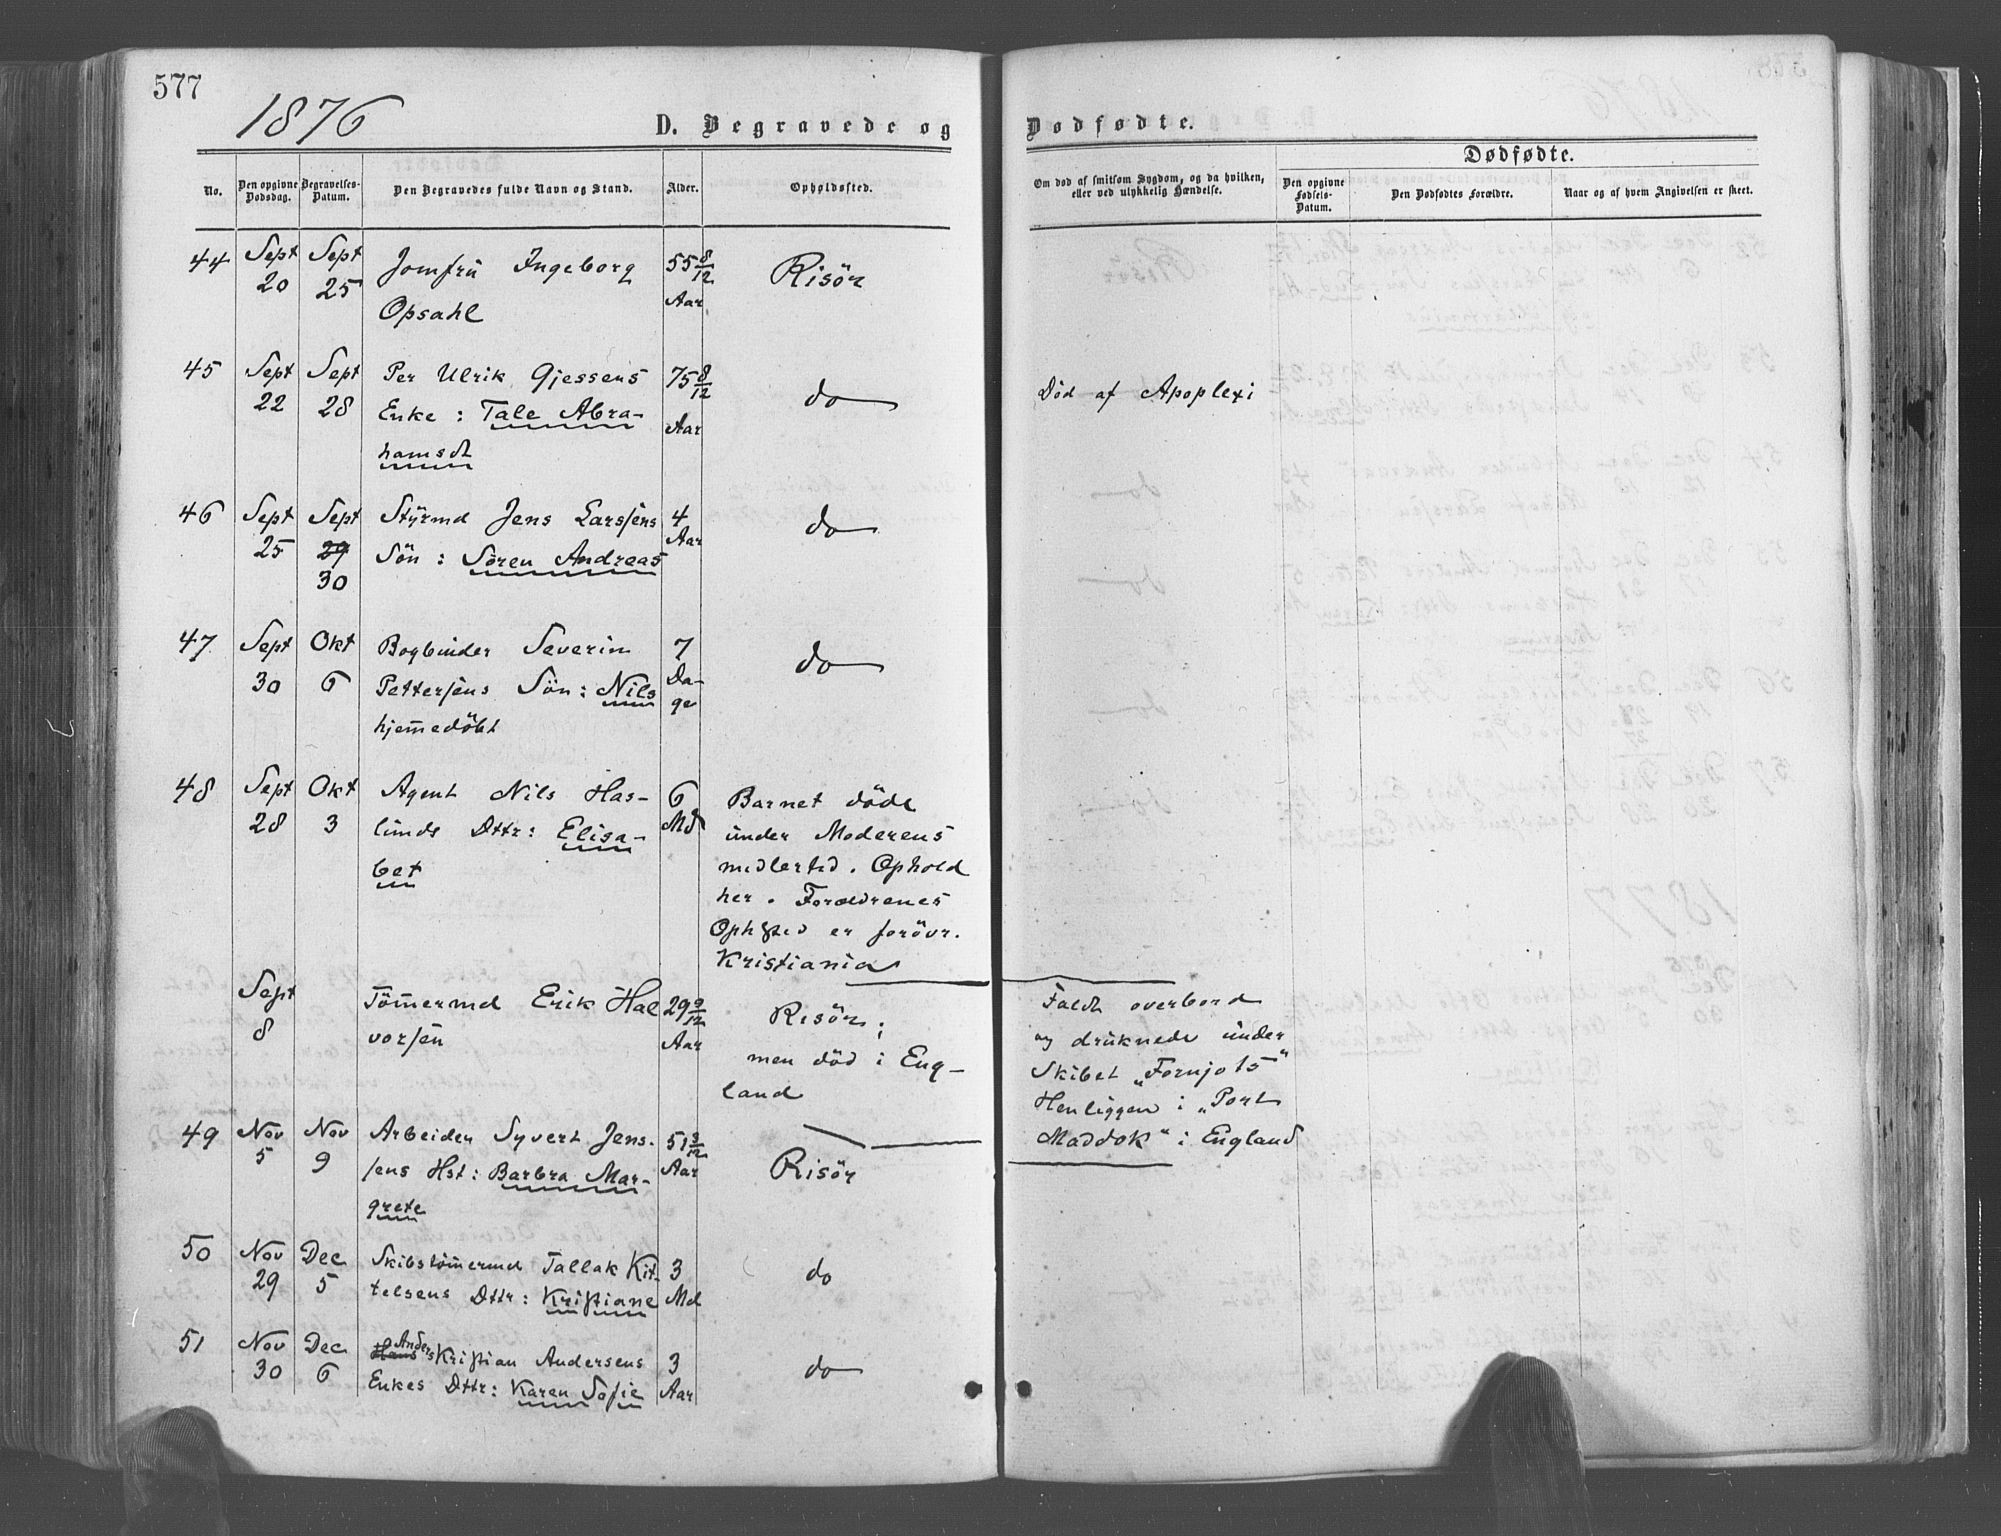 577
1876
D. Begravede og Dødfødte.
Dødfødte.
No. Den opgivne Dødsdag. Begravelses-Datum. Den Begravedes fulde Navn og Stand. Alder. Opholdssted. Om død af smitsom Sygdom, og da hvilken, eller ved ulykkelig Hændelse. Den opgivne Fødsels-Datum. Den Dødfødtes Forældre. Naar og af hvem Angivelsen er skeet.
44 Sept Sept Jomfru Ingeborg 55 8/12 Risör
20 25 Opsahl Aar
45 Sept Sept Per Ulrik Gjessens 75 8/12 do Död af Apoplexi
22 28 Enke: Tale Abra-
hamsdt Aar
46 Sept Sept Styrmd Jens Larssens 4 do
25 29 Sön: Sören Andreas Aar
30
47 Sept Okt Bogbinder Severin 7 do
30 6 Petterssens Sön: Nils Da-
hjemmedöbt ge
48 Sept Okt Agent Nils Has- 6 Barnet döde
28 3 lunds Dttr: Elisa- Md under Moderens
bet midlertid. Ophold
her. Forældrenes
Ophsted er forövr.
Kristiania
Sept Tömmermd Erik Hal 29 9/12 Risör; Faldt overbord
8 vorsen Aar men död i Eng- og druknede under
land Skibet „Fornjots"
Henliggen i „Port
Maddok" i England
49 Nov Nov Arbeider Syvert Jens- 51 3/12 Risör
5 9 sens Hst: Barbra Mar- Aar
grete
50 Nov Dec Skibstömmermd Tallak Kit- 3 do
29 5 telsens Dttr: Kristiane Md
51 Nov Dec Hans Anders Kristian Andersens 3 do
30 6 Enkes Dttr: Karen Sofie Aar